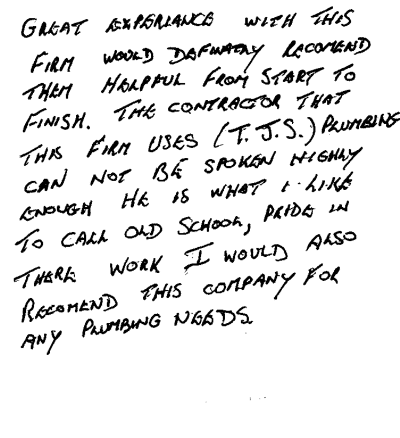 GREAT EXPERIANCE WITH THIS
FIRM WOULD DEFINATLY RECOMEND
THEM HELPFUL FROM START TO
FINISH. THE CONTRACTOR THAT
THIS FIRM USES (T.J.S.) PLUMBING
CAN NOT BE SPOKEN HIGHLY
ENOUGH HE IS WHAT I LIKE
TO CALL OLD SCHOOL, PRIDE IN
THERE WORK I WOULD ALSO
RECOMEND THIS COMPANY FOR
ANY PLUMBING NEEDS